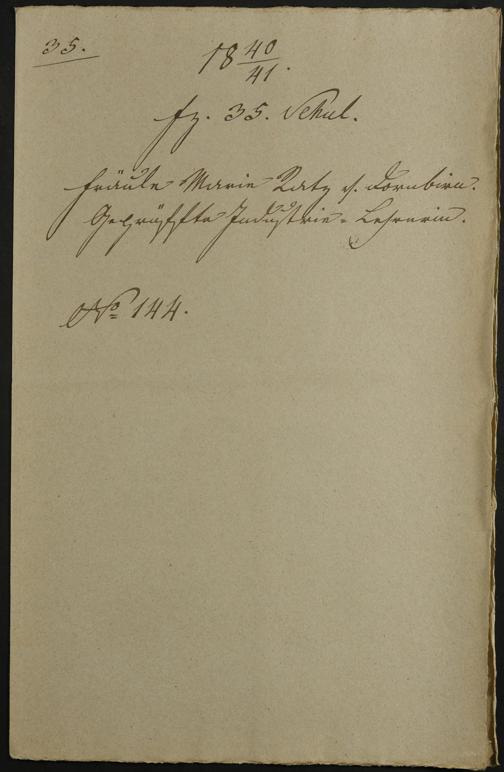 35.
18 40/41.
fz. 35. Schul.
Fräule Marie Ratz v. Dornbirn.
Geprüffte Industrie-Lehrerin.
No 144.